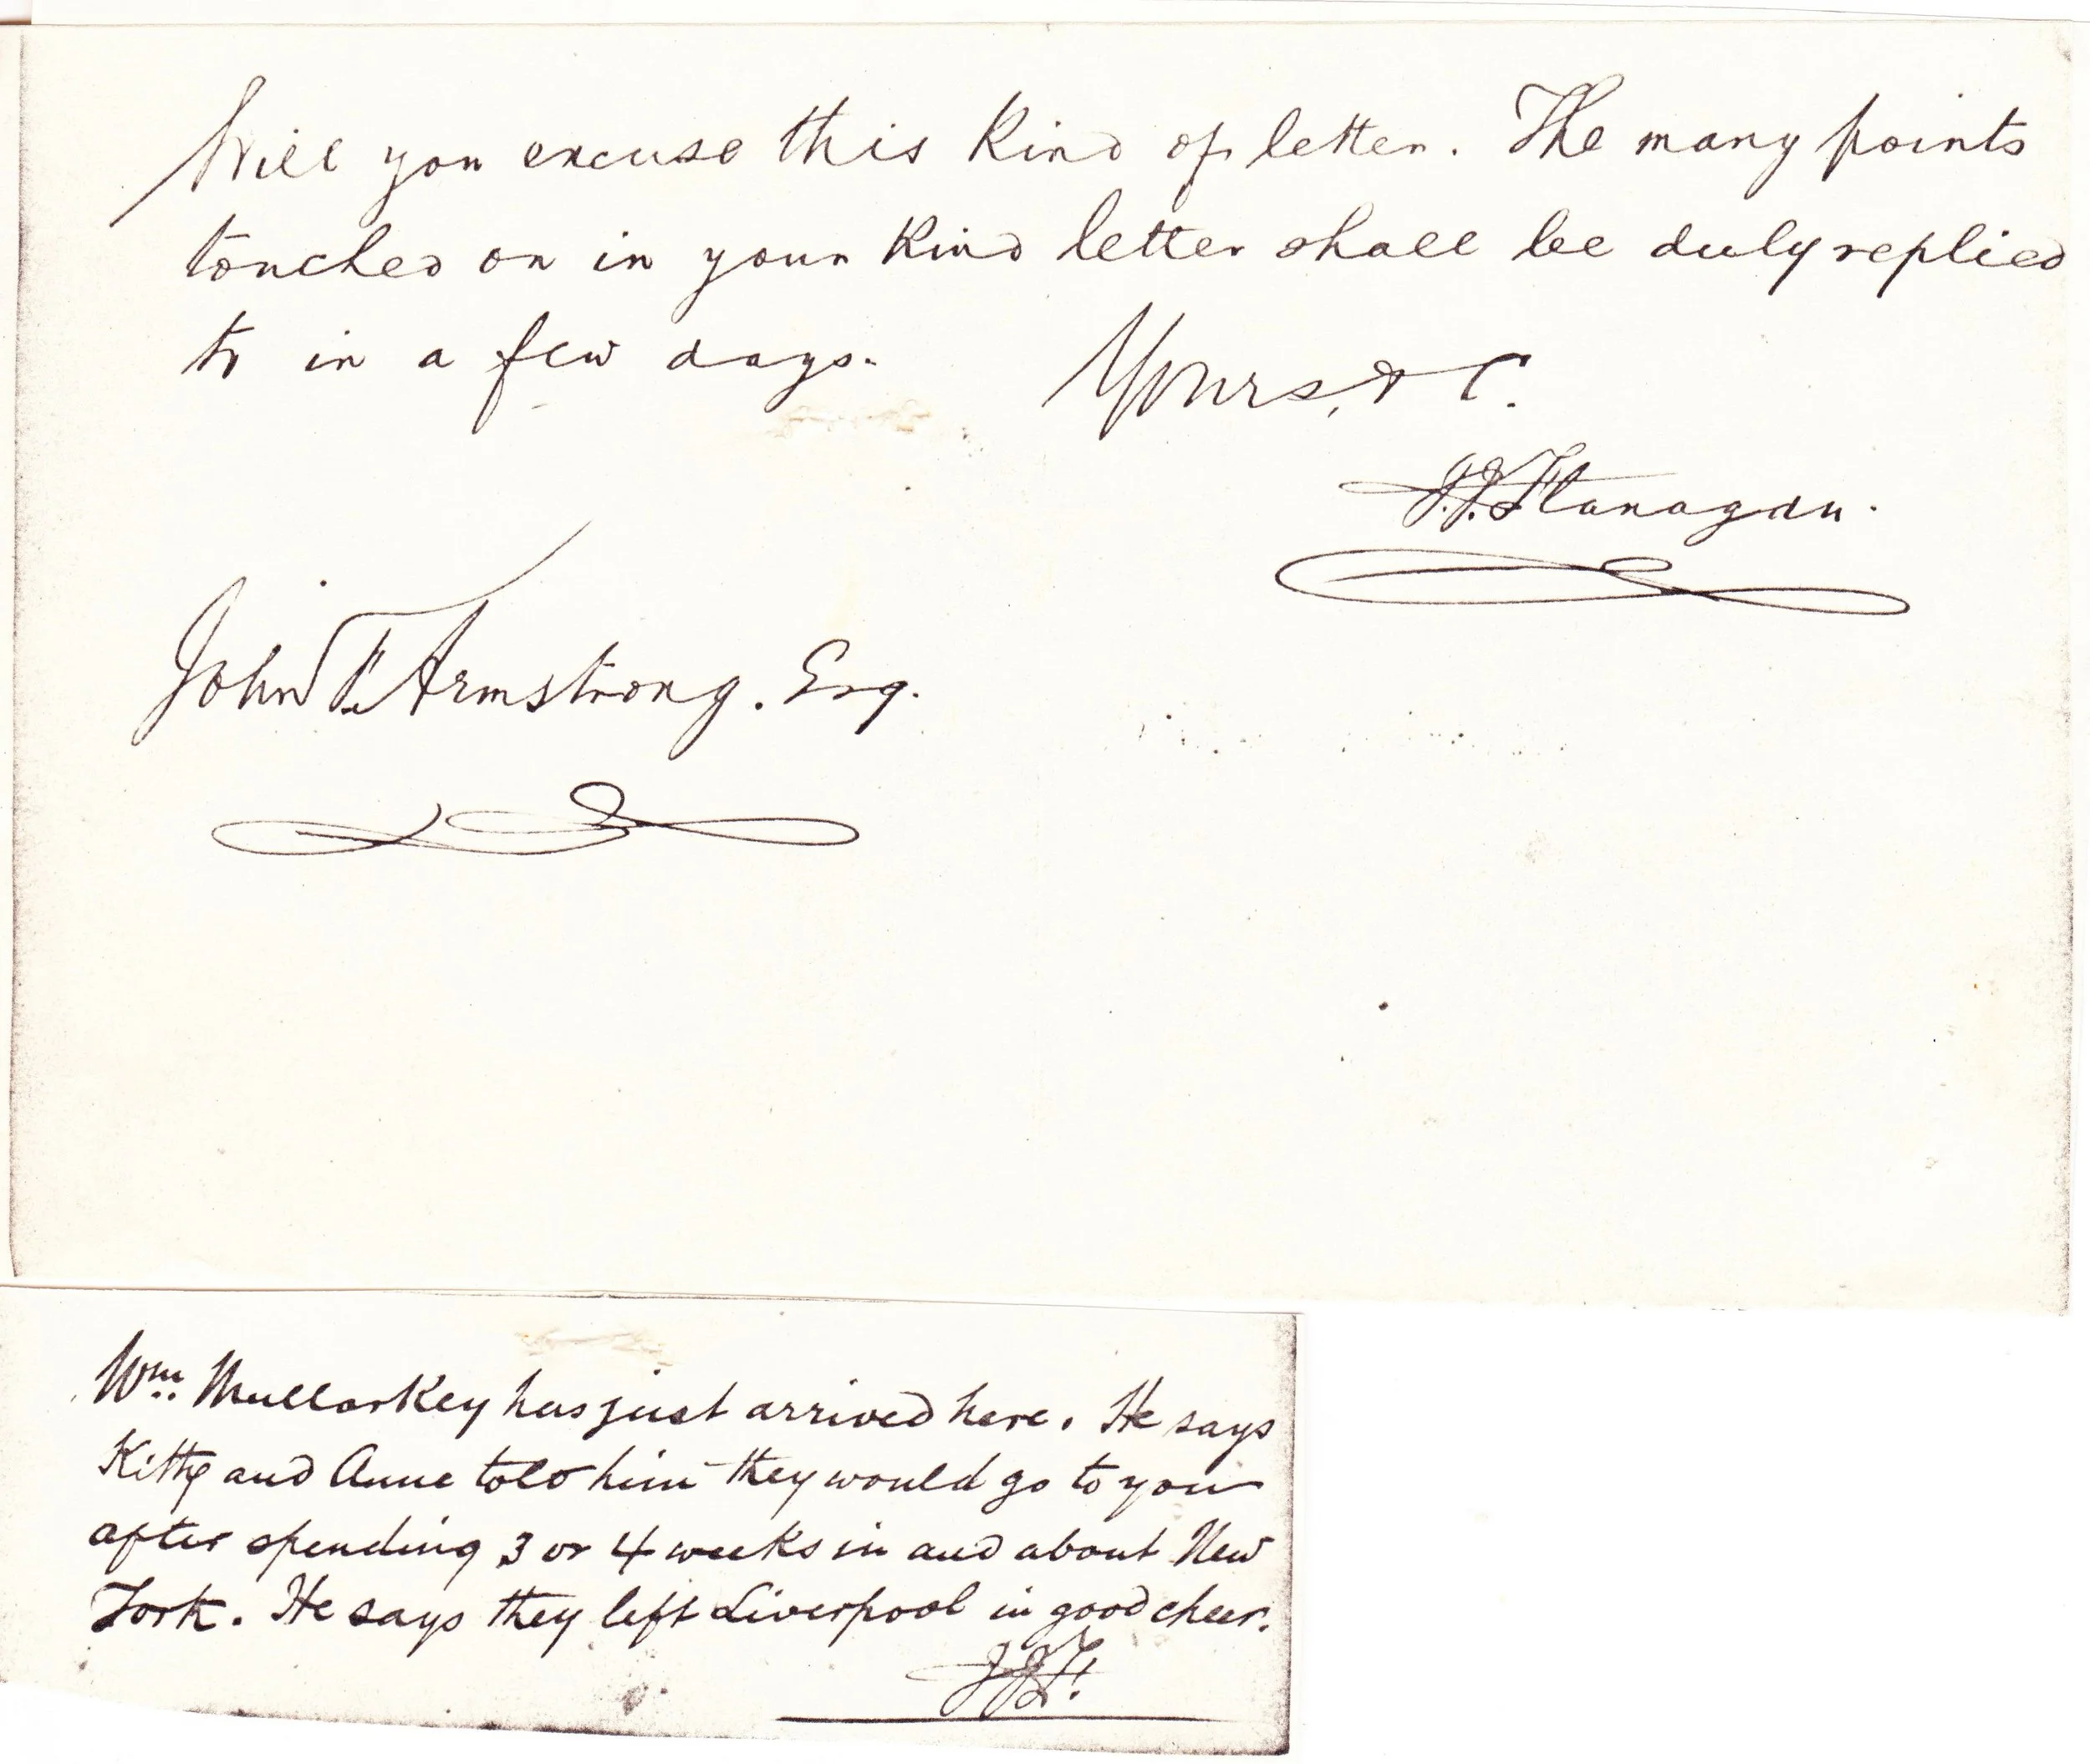 Will you excuse this kind of letter. The many points
touched on in your kind letter shall be duly replied
to in a few days.
Yours, & C.
J.J. Flanagan.
John T. Armstrong. Esq.
Wm. Mullarkey has just arrived here. He says
Kitty and Anne told him they would go to you
after spending 3 or 4 weeks in and about New
York. He says they left Liverpool in good cheer.
J.J.F.